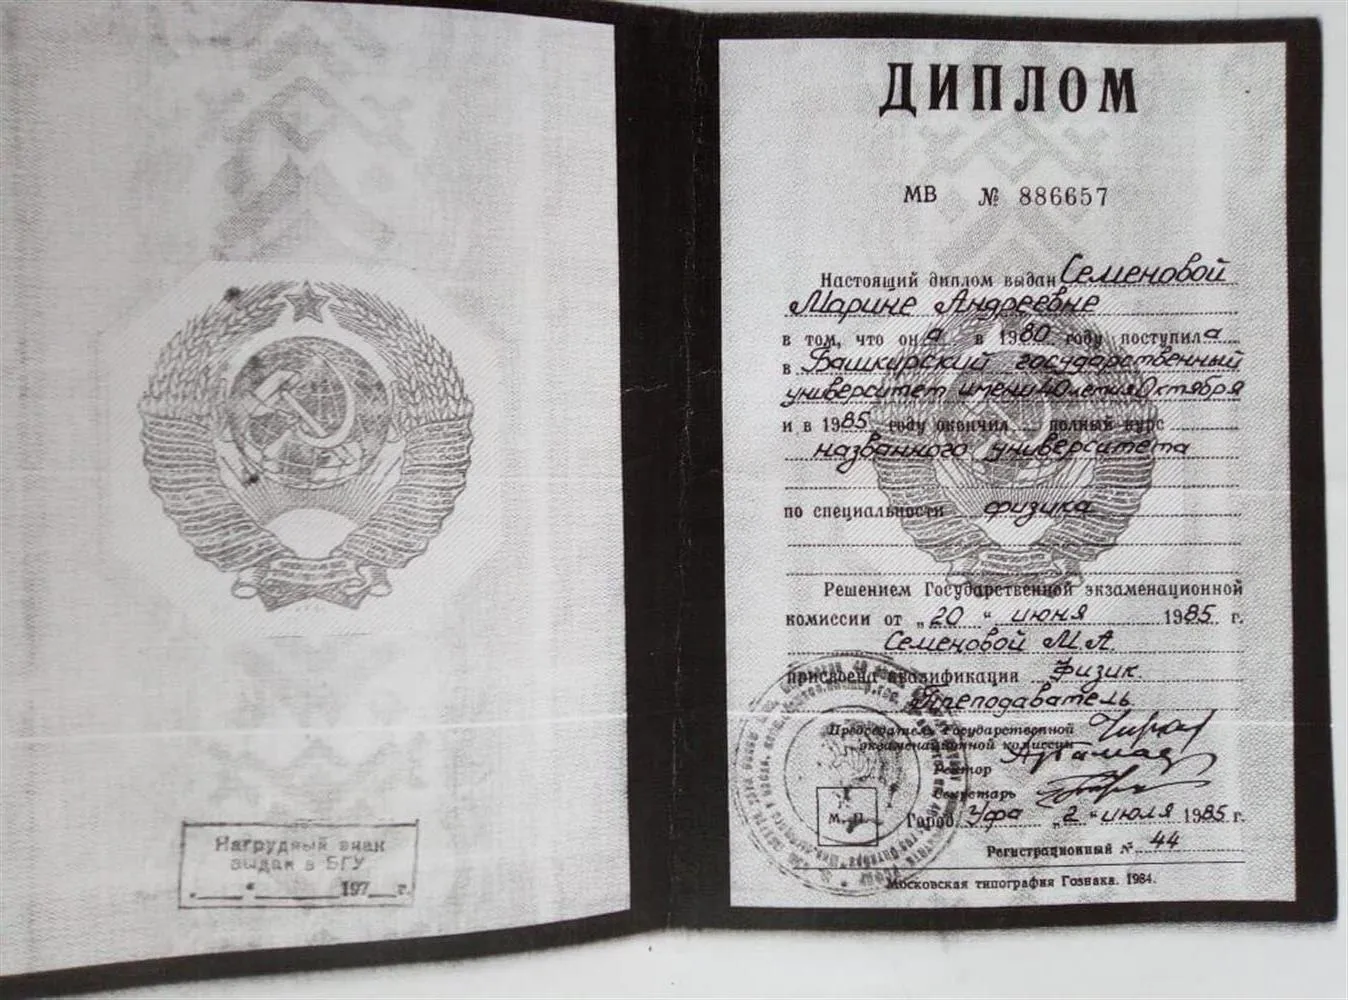 Нагрудный знак
выдан в БГУ
„ “ 197 г.
ДИПЛОМ
МВ № 886657
Настоящий диплом выдан Семеновой
Марине Андреевне
в том, что она в 1980 году поступила
в Башкирский государственный
университет имени 40-летия Октября
и в 1985 году окончил полный курс
названного университета
по специальности физика
Решением Государственной экзаменационной
комиссии от „20“ июня 1985 г.
Семеновой М.А.
присвоена квалификация Физик.
Преподаватель
Председатель Государственной
экзаменационной комиссии
Ректор
Секретарь
М. П.
Город Уфа „2“ июля 1985 г.
Регистрационный № 44
Московская типография Гознака. 1984.